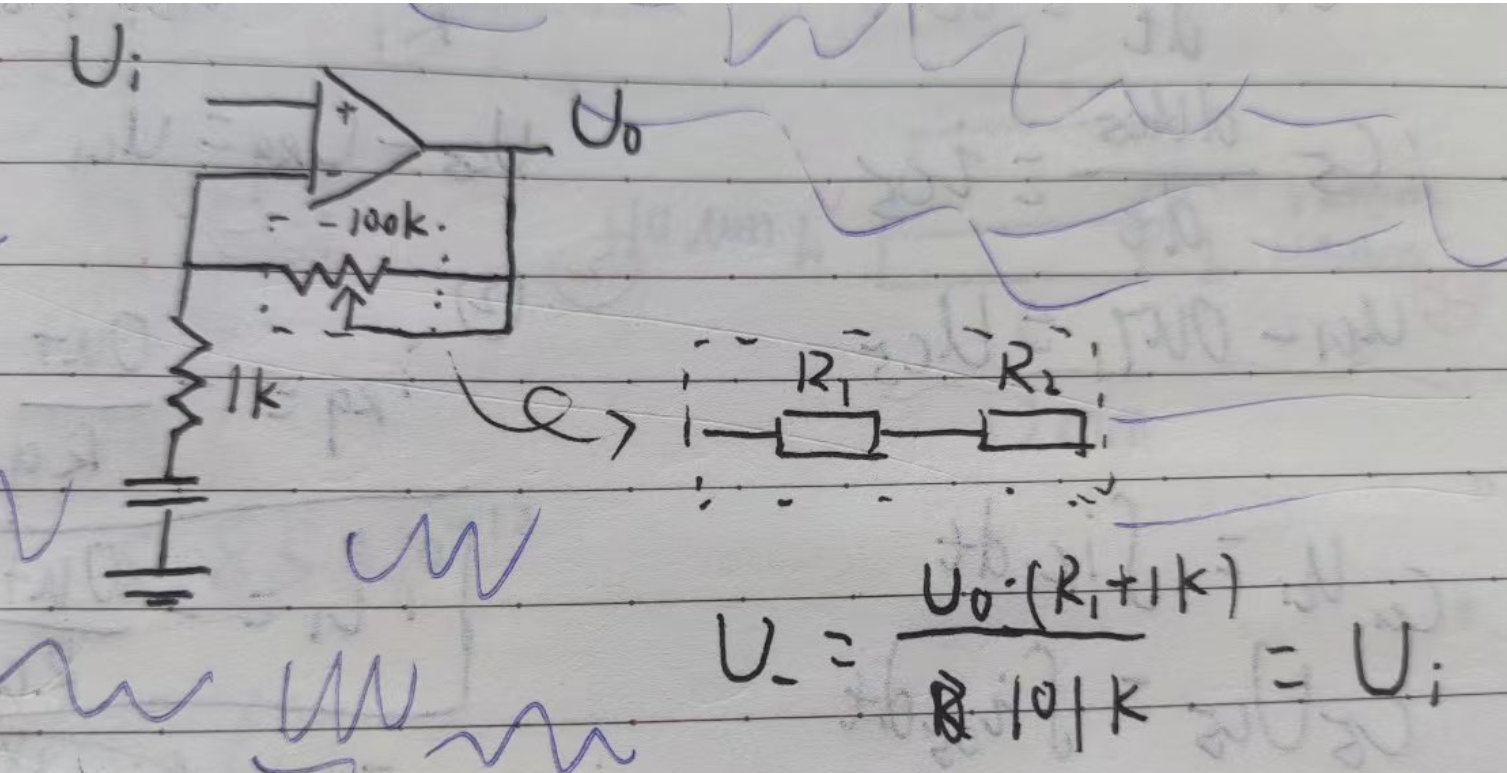 Ui
+
U0
-
-100k.
1k
R1 R2
U- = U0·(R1+1k) / 101k = Ui